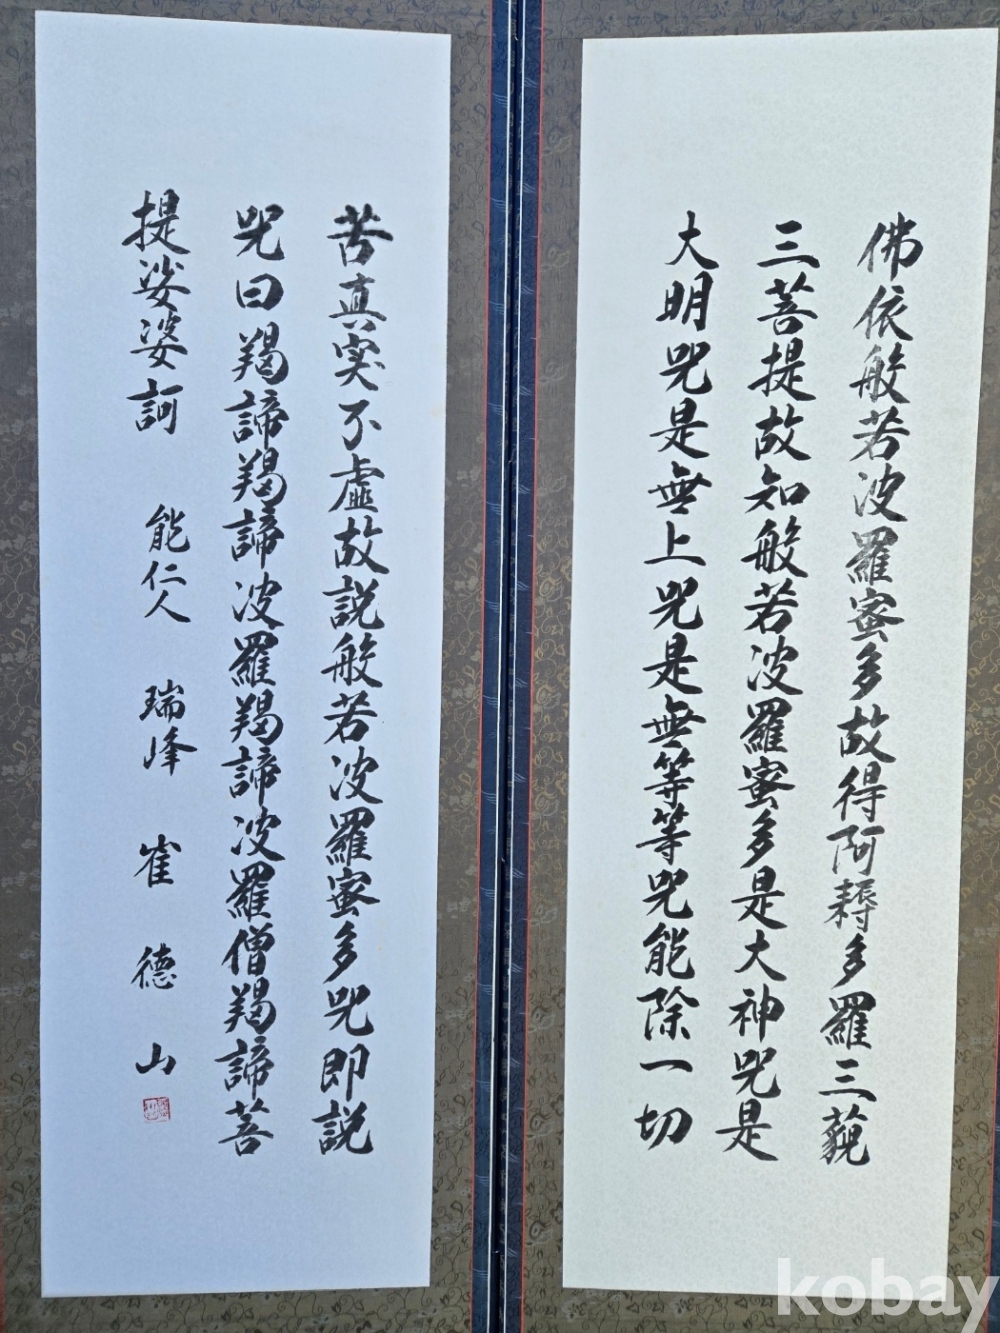 佛依般若波羅蜜多故得阿耨多羅三藐
三菩提故知般若波羅蜜多是大神咒是
大明咒是無上咒是無等等咒能除一切
苦真実不虛故説般若波羅蜜多咒即説
咒曰羯諦羯諦波羅羯諦波羅僧羯諦菩
提娑婆訶 能仁人 瑞峰 崔 德 山
kobay